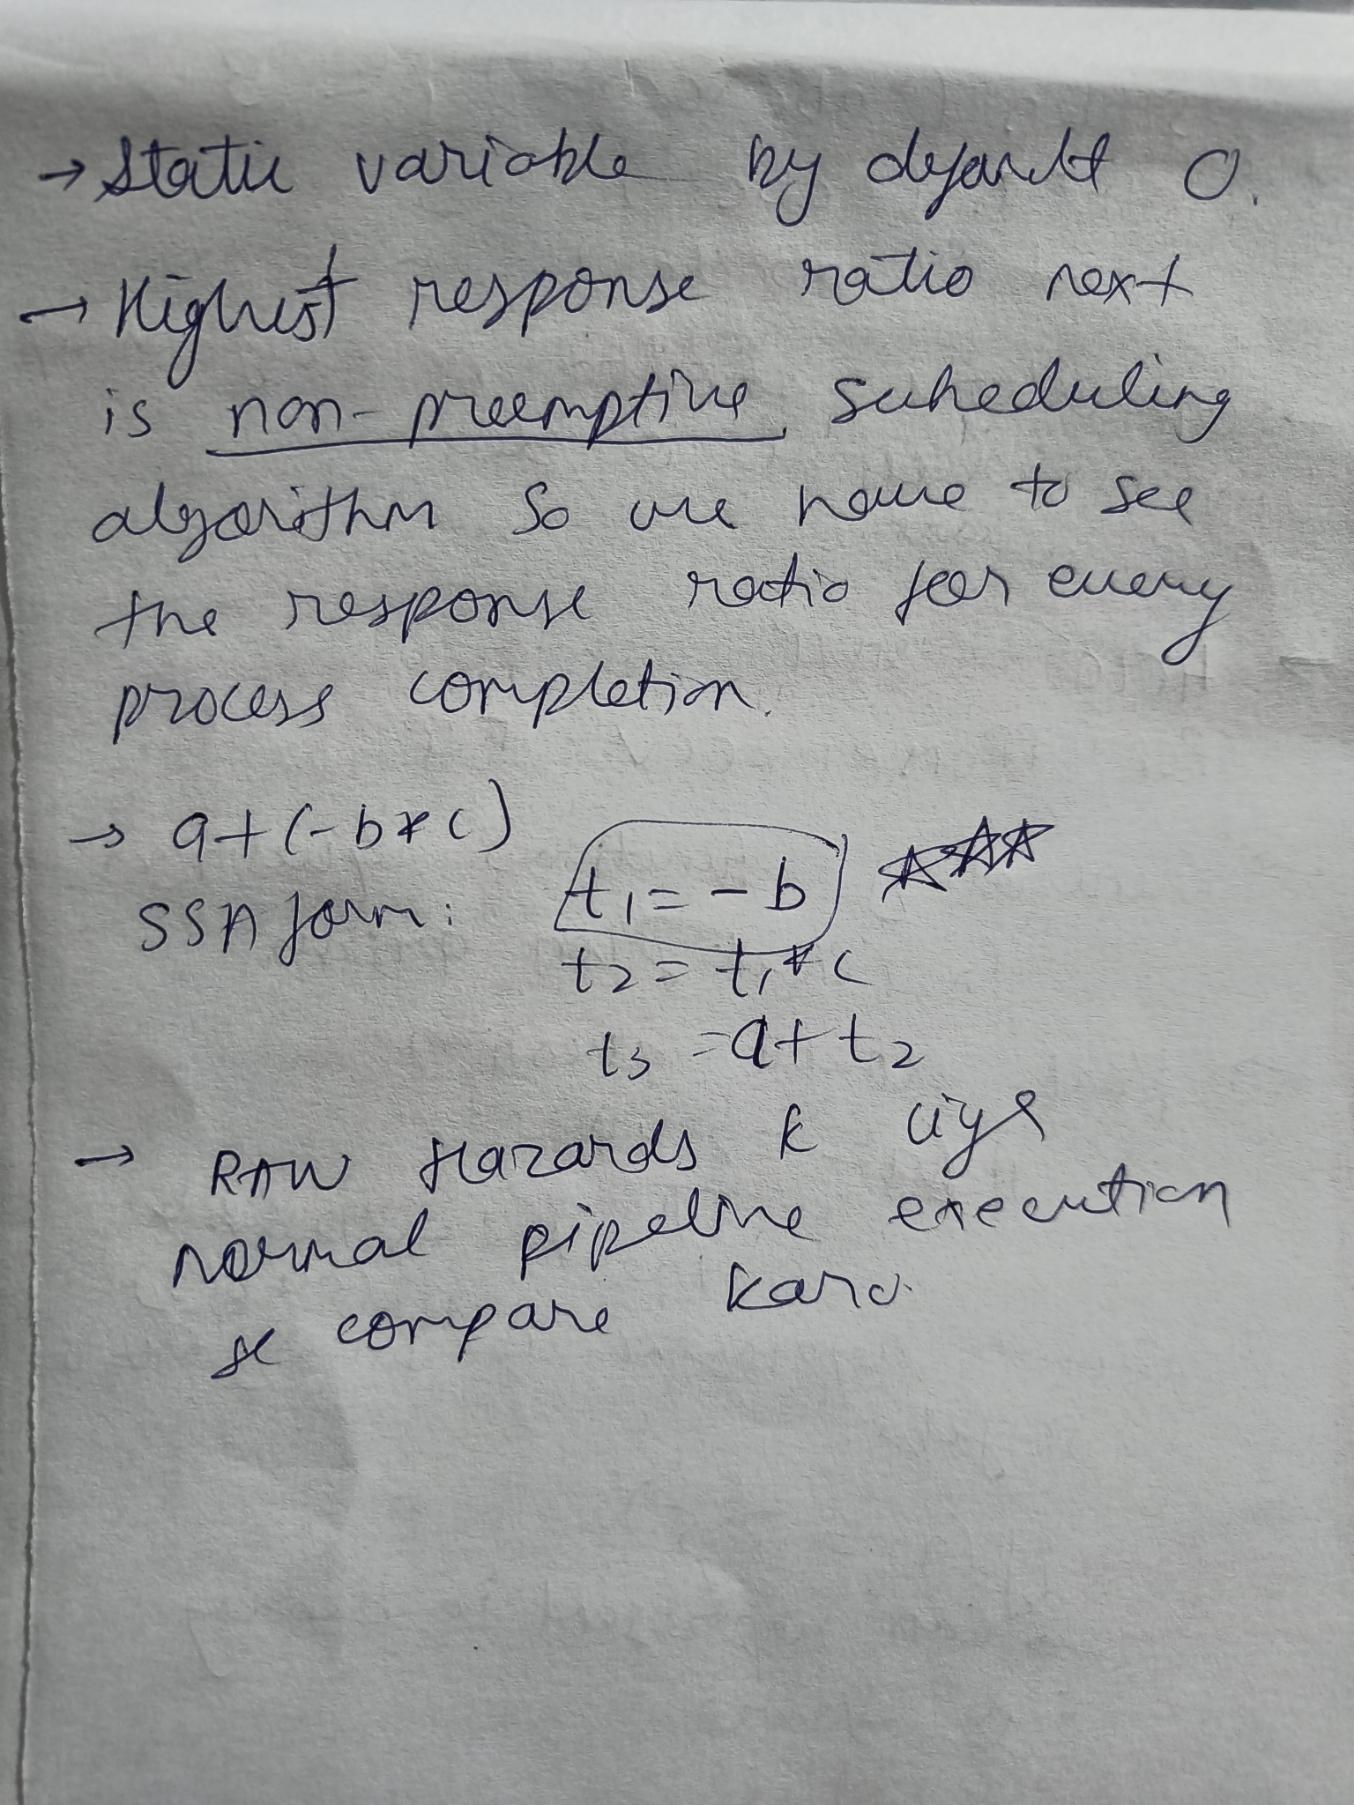 → Static variable by default 0.
→ Highest response ratio next
is non-preemptive scheduling
algorithm so we have to see
the response ratio for every
process completion.
→ a+(-b*c)
SSA form: t1 = -b
t2 = t1*c
t3 = a+t2
→ RAW Hazards k liye
normal pipeline execution
se compare karo.